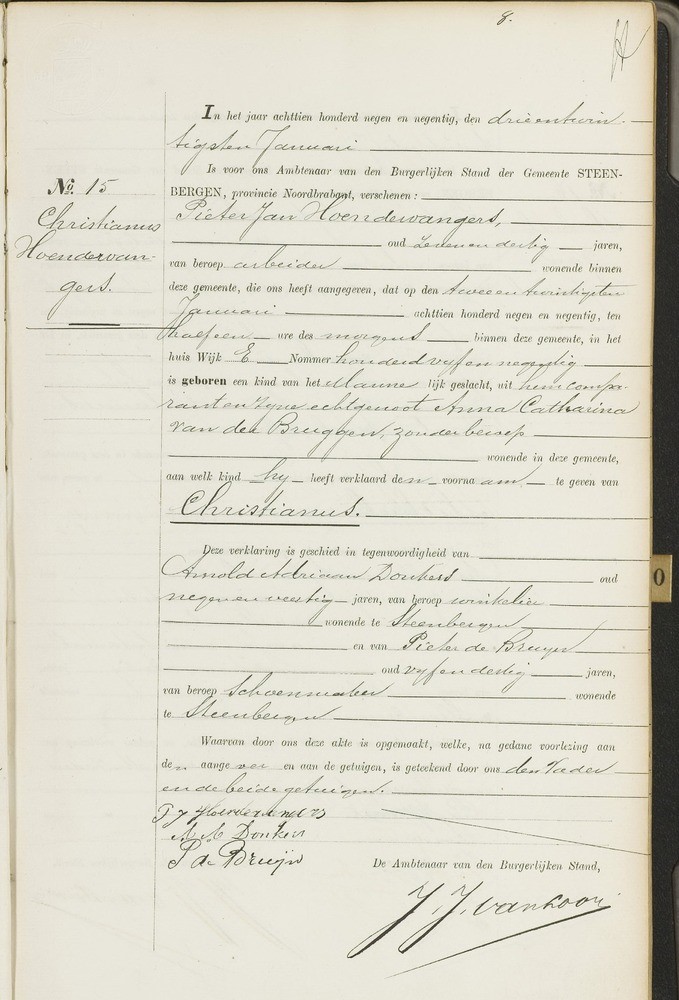 8.
No. 15
Christianus
Hoendervan-
gers.
In het jaar achttien honderd negen en negentig, den drieentwin-
tigsten Januari
Is voor ons Ambtenaar van den Burgerlijken Stand der Gemeente STEEN-
BERGEN, provincie Noordbrabant, verschenen:
Pieter Jan Hoendervangers,
oud zevenendertig jaren,
van beroep arbeider wonende binnen
deze gemeente, die ons heeft aangegeven, dat op den tweeentwintigsten
Januari achttien honderd negen en negentig, ten
half een ure des morgens binnen deze gemeente, in het
huis Wijk E Nommer honderd vyfennegentig
is geboren een kind van het Manne lijk geslacht, uit hem compa-
rant en zyne echtgenoot Anna Catharina
van der Bruggen, zonder beroep
wonende in deze gemeente,
aan welk kind hy heeft verklaard den voorna am te geven van
Christianus.
Deze verklaring is geschied in tegenwoordigheid van
Arnold Adriaan Donkers oud
negenenveertig jaren, van beroep winkelier
wonende te Steenbergen
en van Pieter de Bruyn
oud vyfendertig jaren,
van beroep Schoenmaker wonende
te Steenbergen
Waarvan door ons deze akte is opgemaakt, welke, na gedane voorlezing aan
den aange ver en aan de getuigen, is geteekend door ons den Vader
en de beide getuigen.
P J Hoendervangers
A A Donkers
P de Bruijn
De Ambtenaar van den Burgerlijken Stand,
J. J. van Loon
0